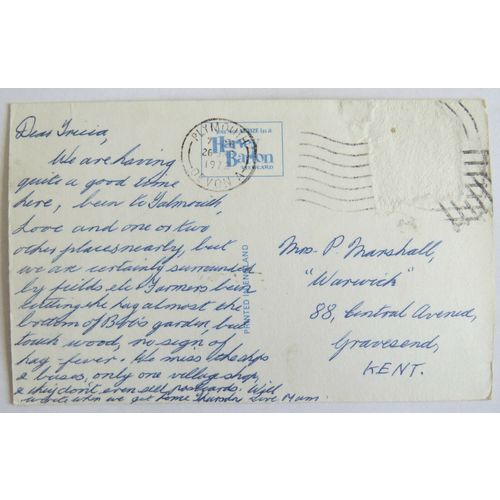 Dear Tricia,
We are having
quite a good time
here, been to Falmouth,
Looe and one or two
other places nearby, but
we are certainly surrounded
by fields, etc. Farmers been
cutting the hay almost the
bottom of garden, but
touch wood, no sign of
hay-fever. We miss the shops
& buses, only one village shop,
& they don't even sell postcards. Will
write when we get home Love Mum.
PLYMOUTH
197
DEVON A
in a
Harvey
Barton
POSTCARD
PRINTED IN ENGLAND
Mrs. P. Marshall,
"Warwick"
88, Central Avenue,
Gravesend,
KENT.